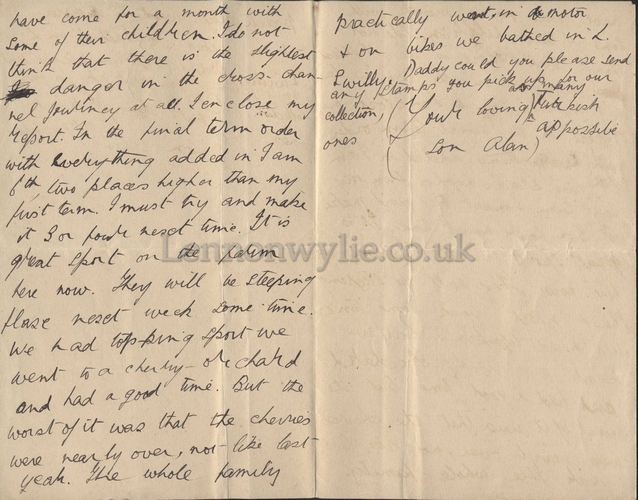 have come for a month with
some of their children. I do not
think that there is the slightest
danger in the cross-chan-
nel journey at all. I enclose my
report. In the final term order
with everything added in I am
6th two places higher than my
first term. I must try and make
it 3 or four next time. It is
great sport on the farm
here now. They will be steeping
flase next week some time.
We had topping sport we
went to a cherry-orchard
and had a good time. But the
worst of it was that the cherries
were nearly over, not like last
year. The whole family
practically went, in motor
& on bikes we bathed in L.
Swilly. Daddy could you please send
any stamps you pick up for our
collection, and many
Turkish
ones as possible
(Your loving
son Alan)
Lennonwylie.co.uk